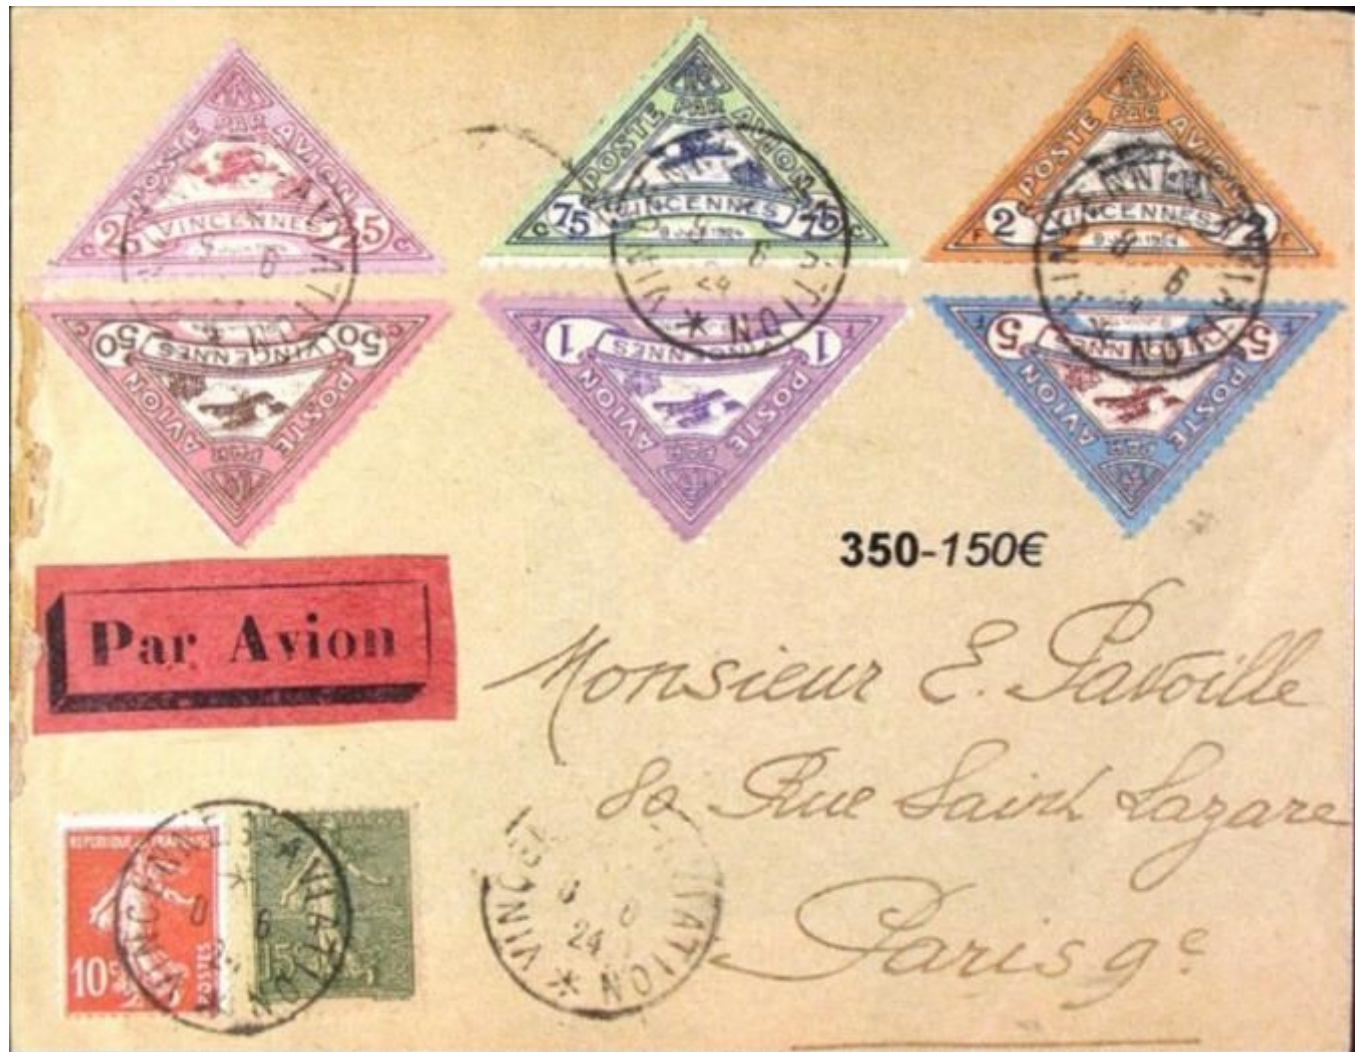 POSTE PAR AVION
25 c VINCENNES 25 c
POSTE PAR AVION
c 75 VINCENNES 75 c
9 JUIN 1924
POSTE PAR AVION
F 2 VINCENNES 2 F
9 JUIN 1924
POSTE PAR AVION
c 50 VINCENNES 50 c
POSTE PAR AVION
F 1 VINCENNES 1 F
POSTE PAR AVION
F 5 VINCENNES 5 F
VINCENNES-AVIATION
350-150€
Par Avion
Monsieur E. Pavoille
80 Rue Saint Lazare
Paris 9e
REPUBLIQUE FRANÇAISE
10c
POSTES
15c
VINCENNES-AVIATION
VINCENNES AVIATION
24